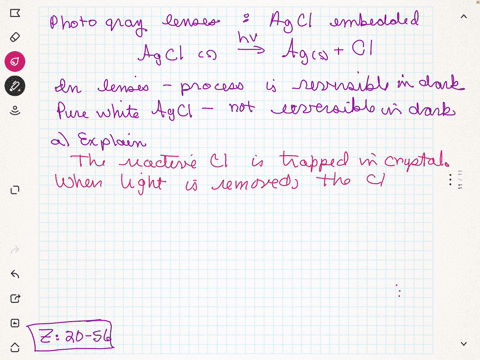 Photo gray lenses : AgCl embedded
hν
AgCl (s) → Ag(s) + Cl
In lenses - process is reversible in dark
Pure white AgCl - not reversible in dark
a) Explain
The reactive Cl is trapped in crystal.
When light is removed, the Cl
Z: 20-56